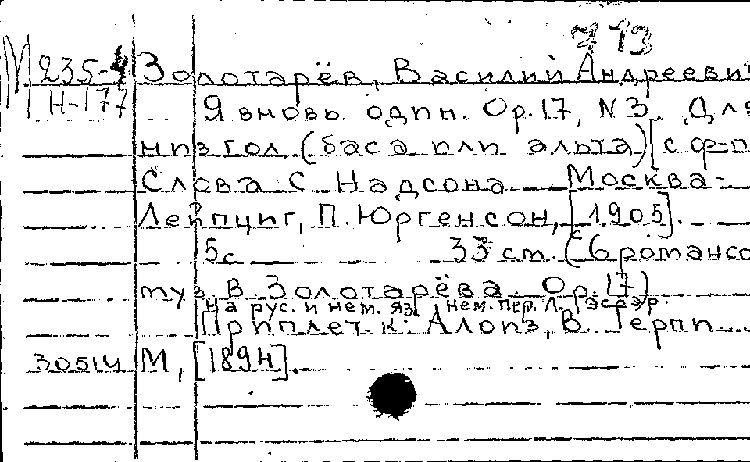 713
М 235-4 Золотарёв, Василий Андреевич
Н-177 Я вновь один. Ор.17, N3. Для
низ гол. (баса или альта) с ф-п
Слова С. Надсона Москва-
Лейпциг, П. Юргенсон, [1905].
5с 33 см. (6 романсо
муз. В. Золотарёва. Ор. 17)
на рус. и нем. яз. нем. пер. Л.
Приплет к: В.
30514 М, [1894].